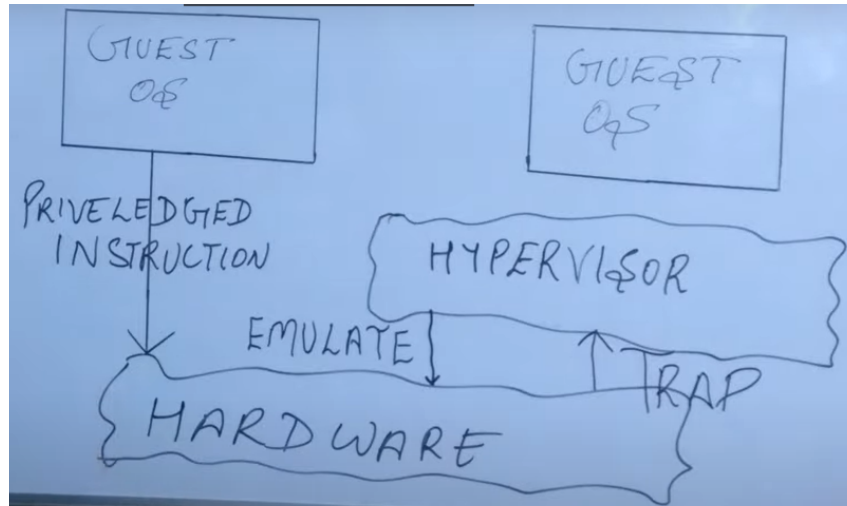 GUEST
OS
GUEST
OS
PRIVELEDGED
INSTRUCTION
HYPERVISOR
EMULATE
TRAP
HARDWARE